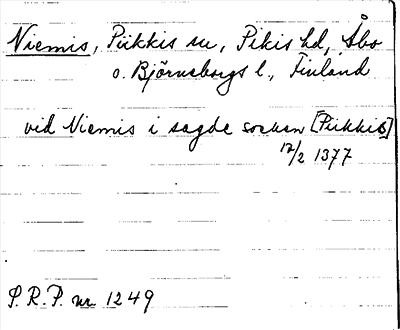 Niemis, Piikkis sn, Pikis hd, Åbo
o. Björneborgs l., Finland
vid Niemis i sagde socken [Piikkis]
12/2 1377
S.R.P. nr 1249